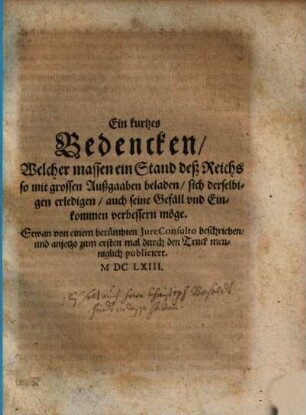 Ein kurtzes
Bedencken/
Welcher massen ein Stand deß Reichs
so mit grossen Außgaaben beladen/ sich derselbi-
gen erledigen/ auch seine Gefäll vnd Ein-
kommen verbessern möge.
Etwan von einem berümbten JureConsulto beschrieben/
und anjetzo zum ersten mal durch den Truck men-
niglich publiciert.
M DC LXIII.
Christoph Besoldt